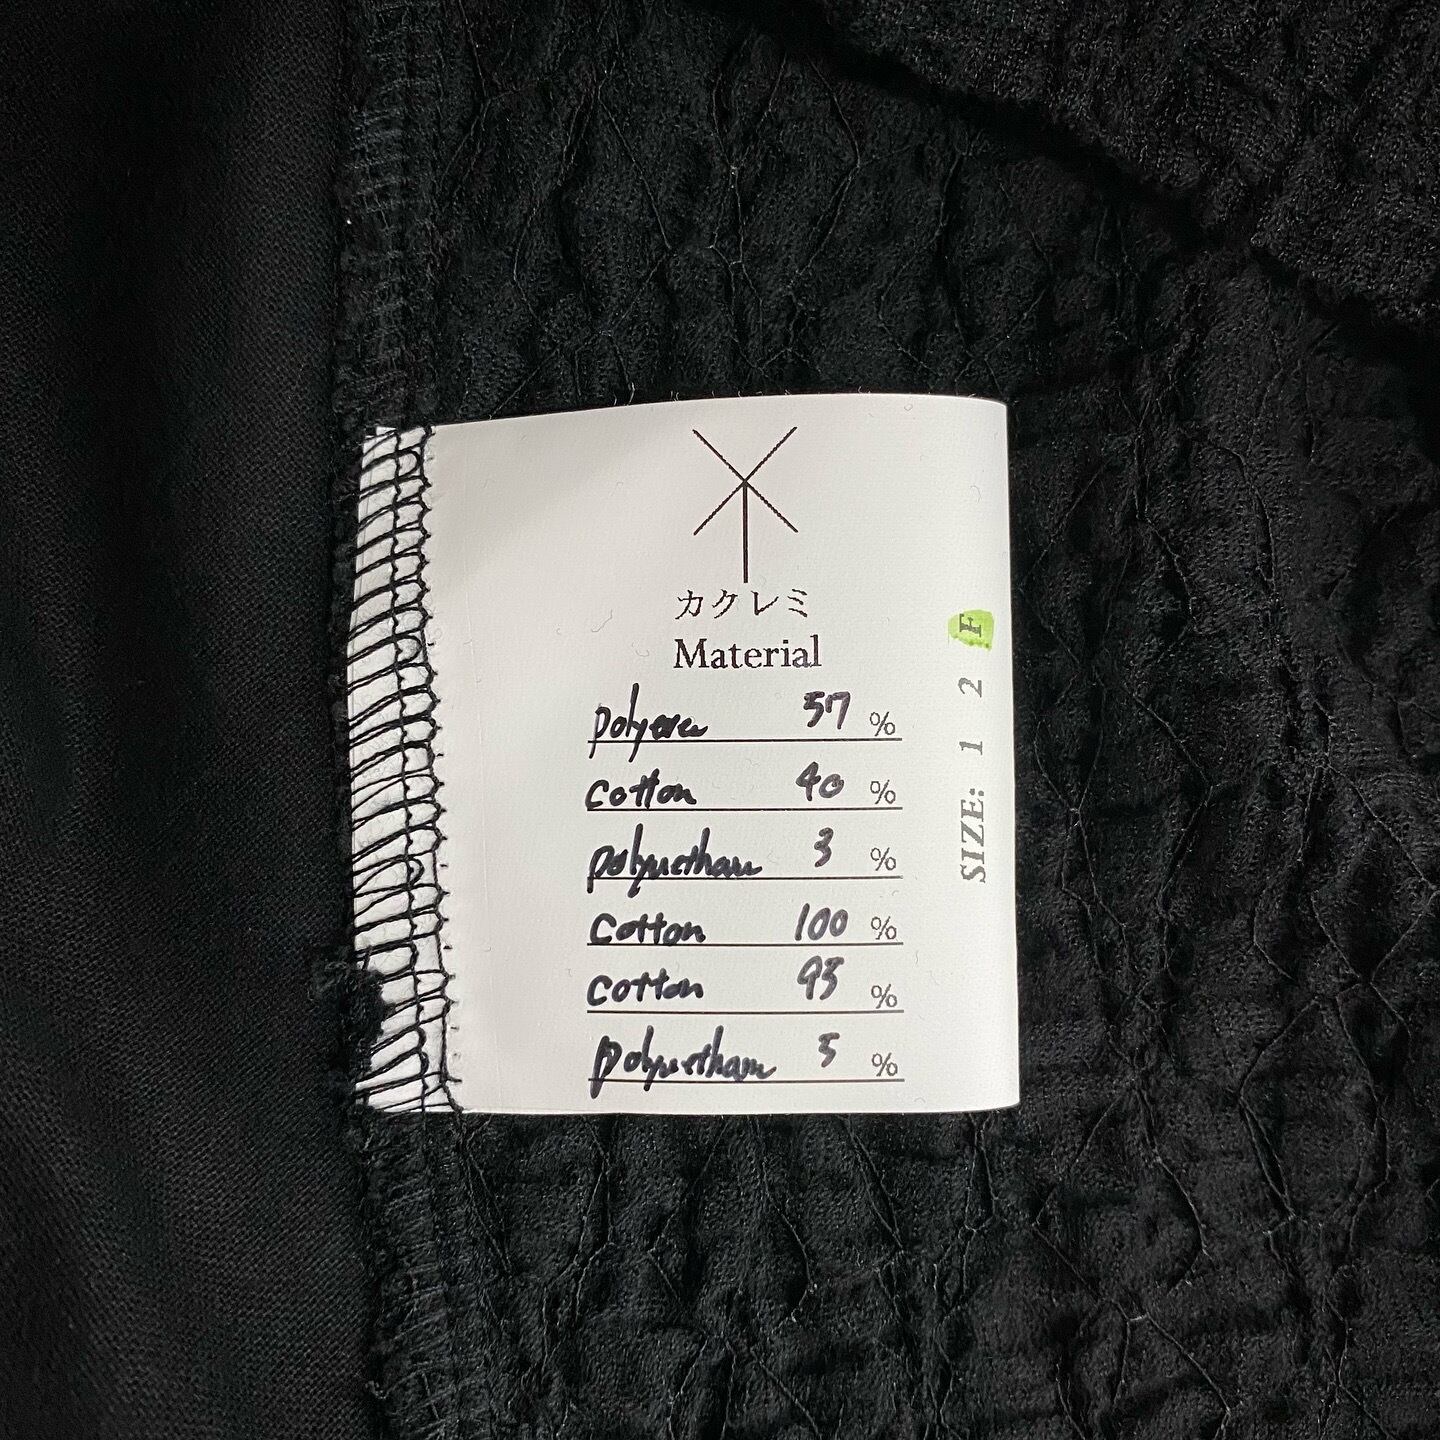 カクレミ
Material
57 %
cotton 40 %
polyurethane 3 %
cotton 100 %
cotton 95 %
polyurethane 5 %
SIZE: 1 2 F